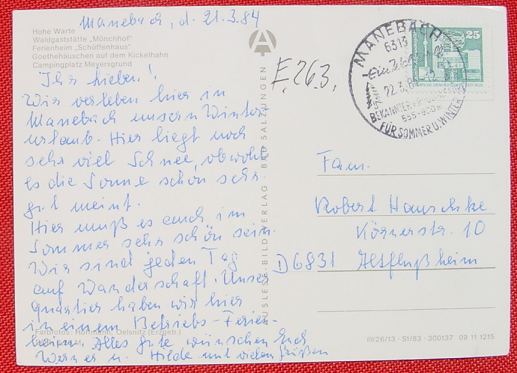 Manebach, d. 21.3.84
Hohe Warte
Waldgaststätte „Mönchhof"
Ferienheim „Schöffenhaus"
Goethehäuschen auf dem Kickelhahn
Campingplatz Meyersgrund
Ihr Lieben!
Wir verleben hier in
Manebach unsern Winter
urlaub. Hier liegt noch
sehr viel Schnee, obwohl
es die Sonne schon sehr
gut meint.
Hier muß es auch im
Sommer sehr schön sein.
Wir sind jeden Tag
auf Wanderschaft. Unser
quartier haben wir hier
in einem Betriebs-Ferien-
heim. Alles Gute wünschen Euch
Werner u. Hilde mit vielen Grüßen
Oelsnitz (Erzgeb.)
BILD VERLAG BAD SALZUNGEN
E.263.
MANEBACH
6313
22.3.84
FÜR SOMMER U. WINTER
25
Fam.
Robert Hauschke
Körnerstr. 10
D6831 Altlußheim
III/26/13 · S1/83 · 300137 09 11 1215